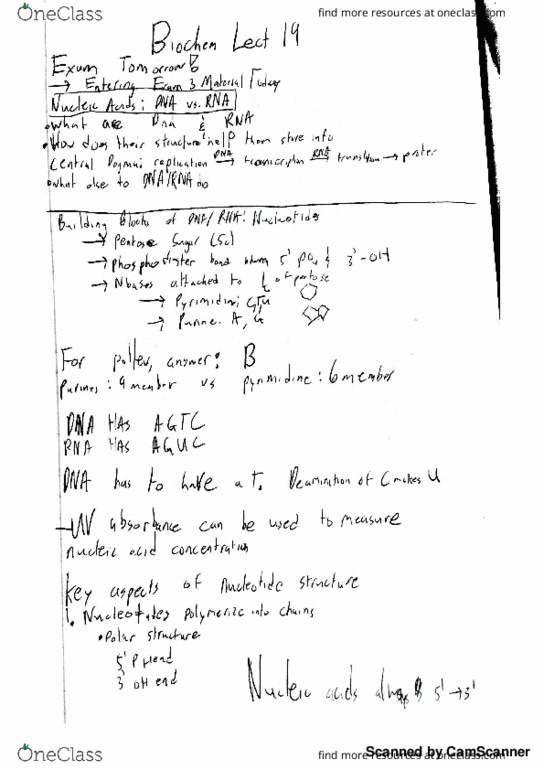 OneClass
find more resources at oneclass.com
Biochem Lect 19
Exam Tomorrow
→ Entering Exam 3 Material Today
Nucleic Acids: DNA vs. RNA
• What are Dna & RNA
• How does their structure help them store info
Central replication DNA → RNA → →
• What else to DNA/RNA do
Building Blocks of DNA/RNA: Nucleotides
→ Pentose Sugar (5c)
→ Phosphodiester bond 5' PO4 & 3'-OH
→ Nbases attached to of pentose
→ Pyrimidine:
→ Purine: A, G
For answer: B
Purines: 9 member vs pyrimidine: 6 member
DNA HAS AGTC
RNA HAS AGUC
DNA has to have a T. Deamination of C makes U
- UV absorbance can be used to measure
nucleic acid concentration
Key aspects of nucleotide structure
1. Nucleotides polymerize into chains
• Polar structure
5' P end
3' OH end
Nucleic acids always 5' → 3'
OneClass
find more resources at oneclass.com
Scanned by CamScanner